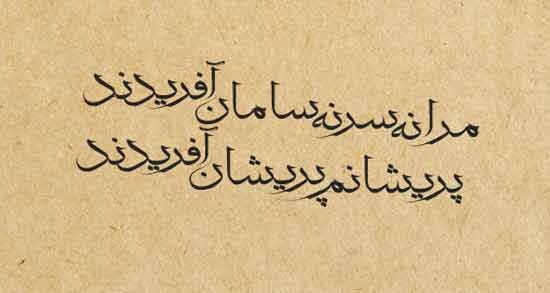 مرا نه سر نه سامان آفریدند
پریشانم پریشان آفریدند